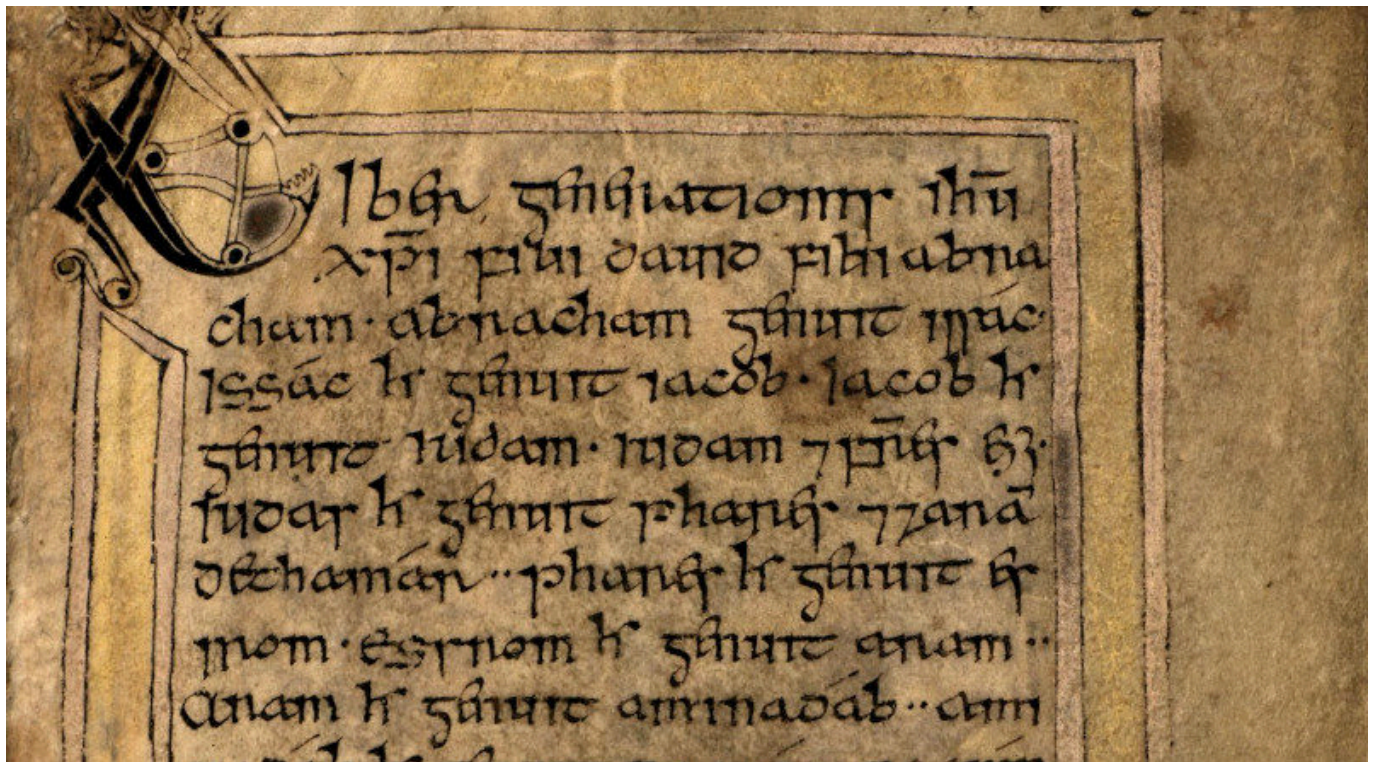 Liber generationis ihū
xp̄i filii dauid filii abra
cham · abracham genuit issác ·
issác hr genuit iacob · iacob hr
genuit iudam · iudam ⁊ fr̄es ei ·
iudas hr genuit phares ⁊ zarā
dethamár ·· phares hr genuit es
rom · esrom hr genuit aram ··
aram hr genuit aminadáb ·· ami